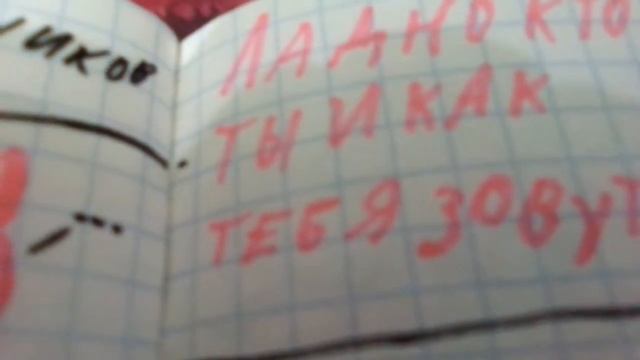 ЛАДНО КТО
ТЫ И КАК
ТЕБЯ ЗОВУТ